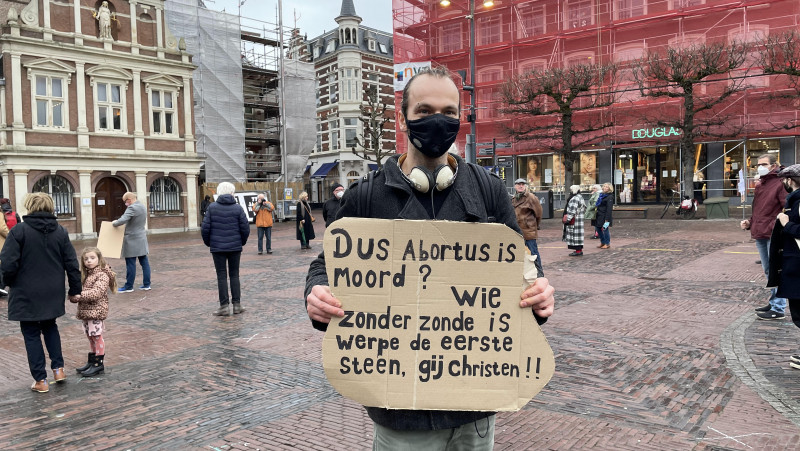 Dus Abortus is
moord? Wie
zonder zonde is
werpe de eerste
steen, gij christen!!
DOUGLAS